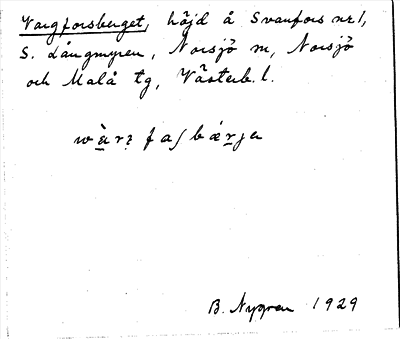 Vargforsberget, höjd å Svanfors nr 1,
S. Långmyren, Norsjö sn, Norsjö
och Malå tg, Västerb. l.
B. Nygren 1929